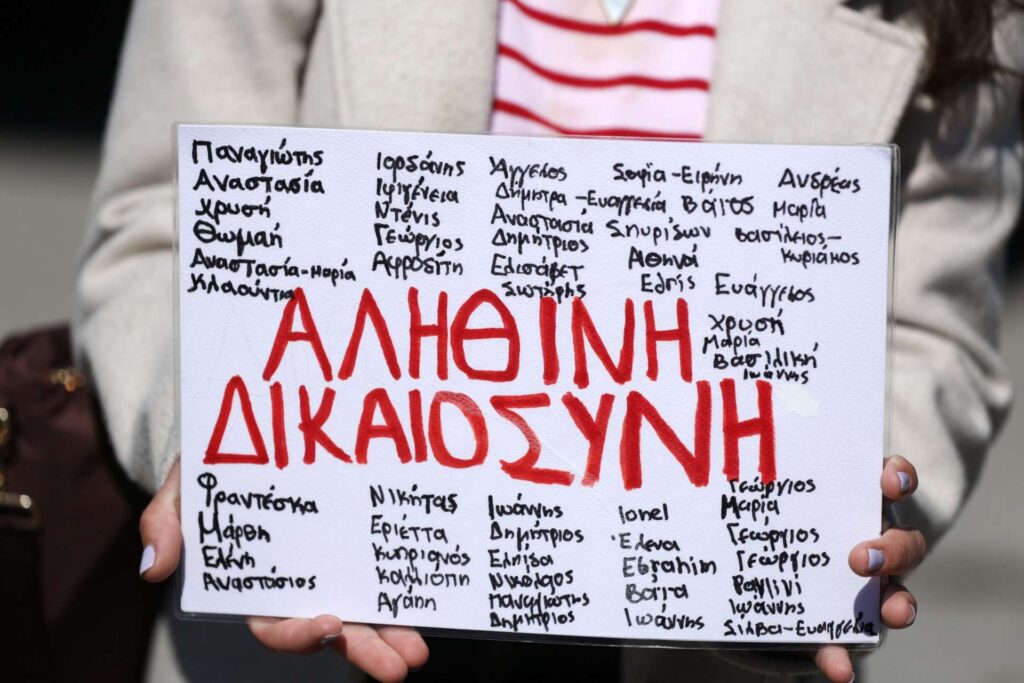 Παναγιώτης
Αναστασία
Χρυσή
Θωμαή
Αναστασία-Μαρία
Κλαούντια
Ιορδάνης
Ιφιγένεια
Ντένις
Γεώργιος
Αφροδίτη
Άγγελος
Δήμητρα-Ευαγγελία
Αναστασία
Δημήτριος
Ελισάβετ
Σωτήρης
Σοφία-Ειρήνη
Βάιος
Σπυρίδων
Αθηνά
Ελπίς
Ανδρέας
Μαρία
Βασίλειος-
Κυριάκος
Ευάγγελος
Χρυσή
Μαρία
Βασιλική
Ιωάννης
ΑΛΗΘΙΝΗ
ΔΙΚΑΙΟΣΥΝΗ
Φραντέσκα
Μάρθη
Ελένη
Αναστάσιος
Νικήτας
Εριέττα
Κυπριανός
Καλλιόπη
Αγάπη
Ιωάννης
Δημήτριος
Ελπίδα
Νικόλαος
Παναγιώτης
Δημήτριος
Ionel
Έλενα
Ebrahim
Βάια
Ιωάννης
Γεώργιος
Μαρία
Γεώργιος
Γεώργιος
Ιωάννης
Σίλβια-Ευαγγελία